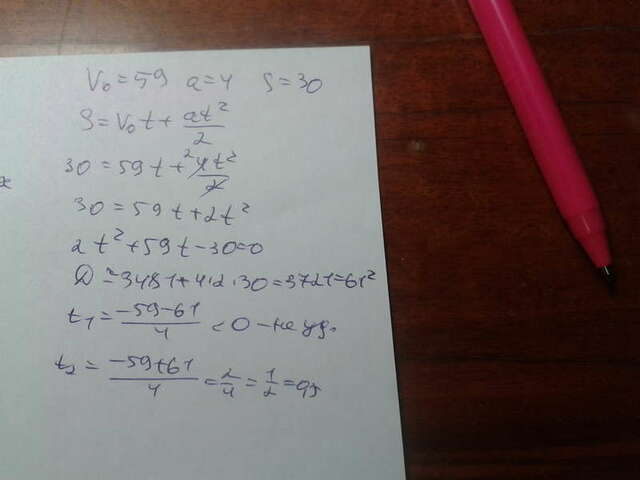 V₀=59 a=4 S=30
S=V₀t+at²/2
30=59t+²4t²/2
30=59t+2t²
2t²+59t-30=0
D=3481+4·2·30=3721=61²
t₁=-59-61/4<0-не уд.
t₂=-59+61/4=2/4=1/2=0,5
x